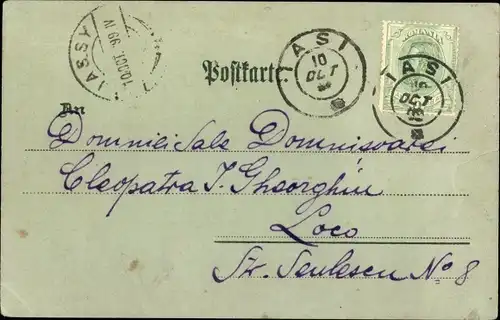 IASSY
10 OCT 99
IASI
10
OCT
IASI
10
OCT
Postkarte.
An
Domniei Sale Domnisoarei
Cleopatra I. Gheorghiu
Loco
Str. Senlescu No 8